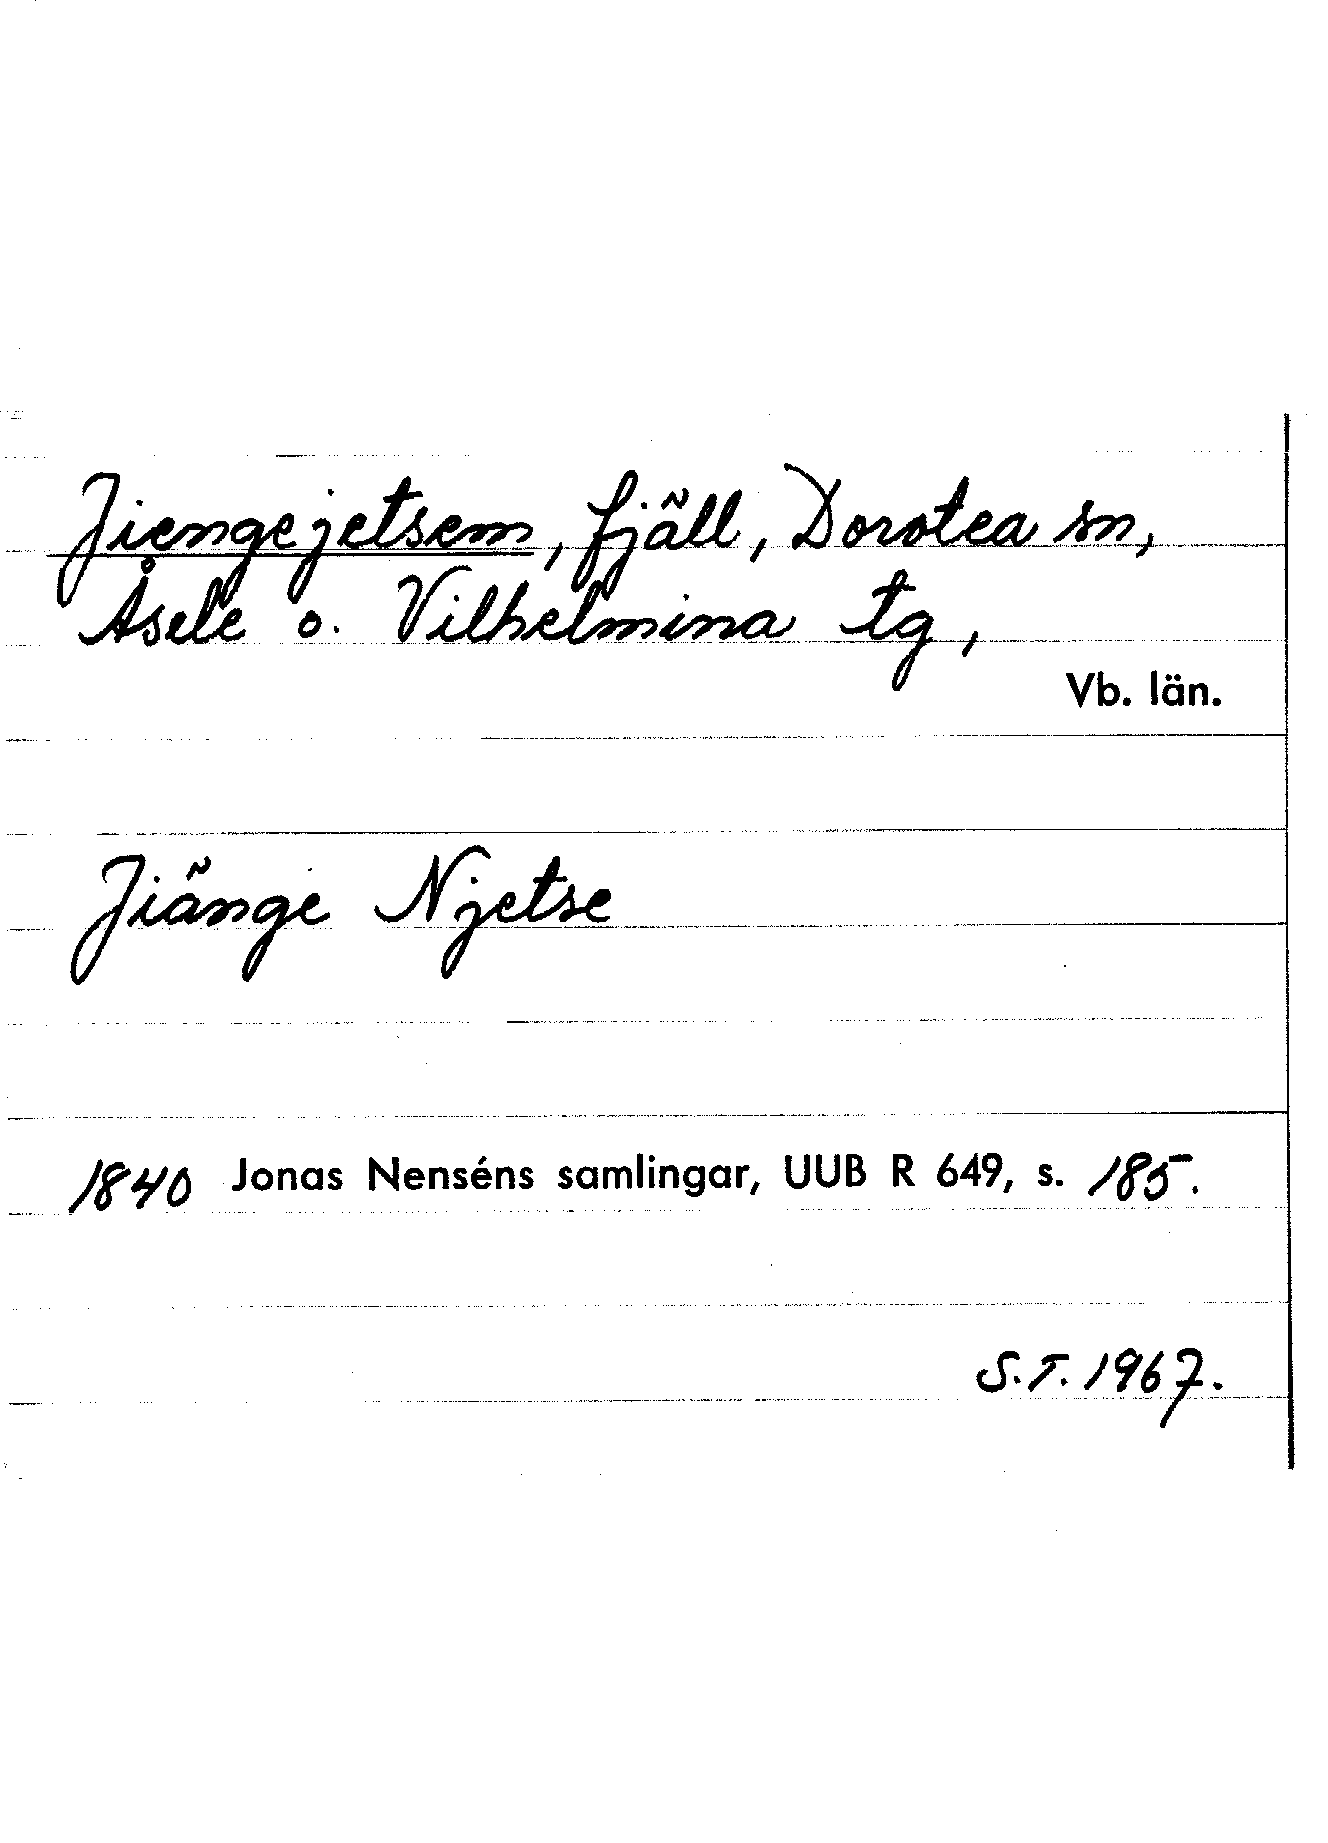 Jiengejetsem, fjäll, Dorotea sn,
Åsele o. Vilhelmina tg,
Vb. län.
Jiänge Njetse
1840 Jonas Nenséns samlingar, UUB R 649, s. 185.
S.T. 1967.